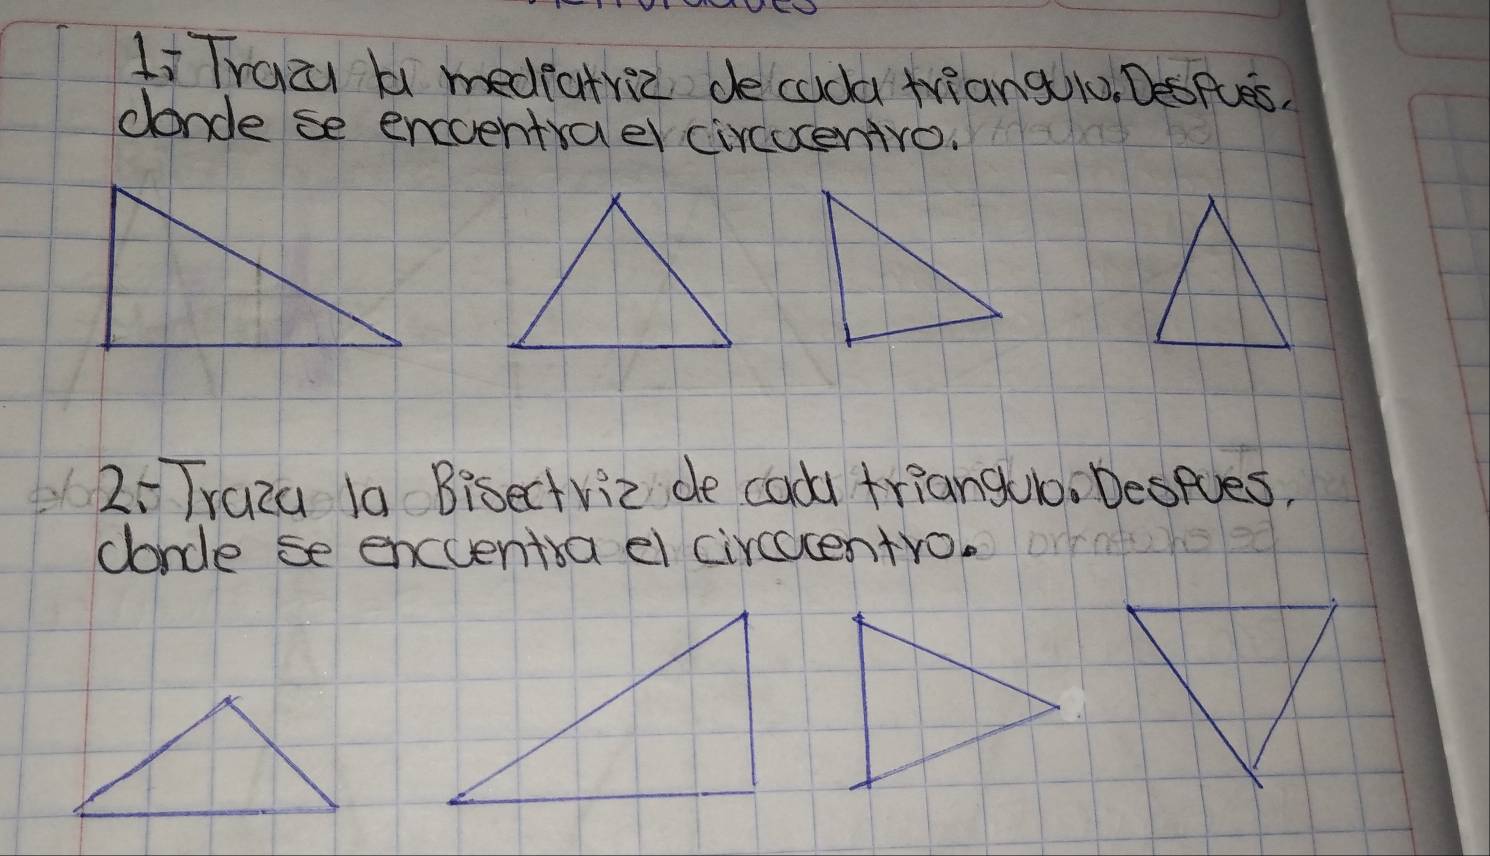 1.- Traza la mediatriz de cada triangulo. Después.
donde se encuentra el circucentro.
2.- Traza la Bisectriz de cada triangulo. Despues.
donde se encuentra el circucentro.